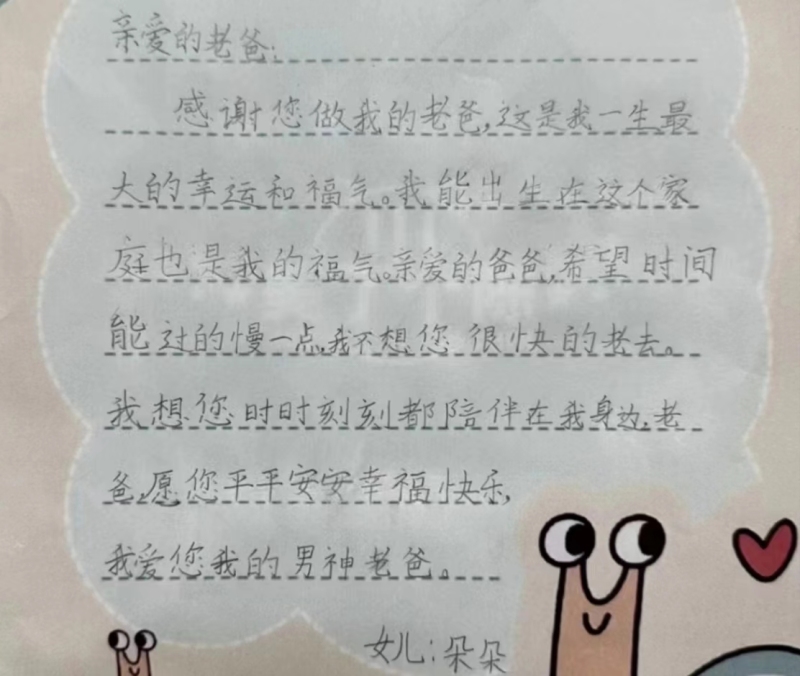 亲爱的老爸:
感谢您做我的老爸,这是我一生最
大的幸运和福气。我能出生在这个家
庭也是我的福气。亲爱的爸爸,希望时间
能过的慢一点,我不想您很快的老去。
我想您时时刻刻都陪伴在我身边,老
爸,愿您平平安安幸福快乐,
我爱您我的男神老爸。
女儿:朵朵